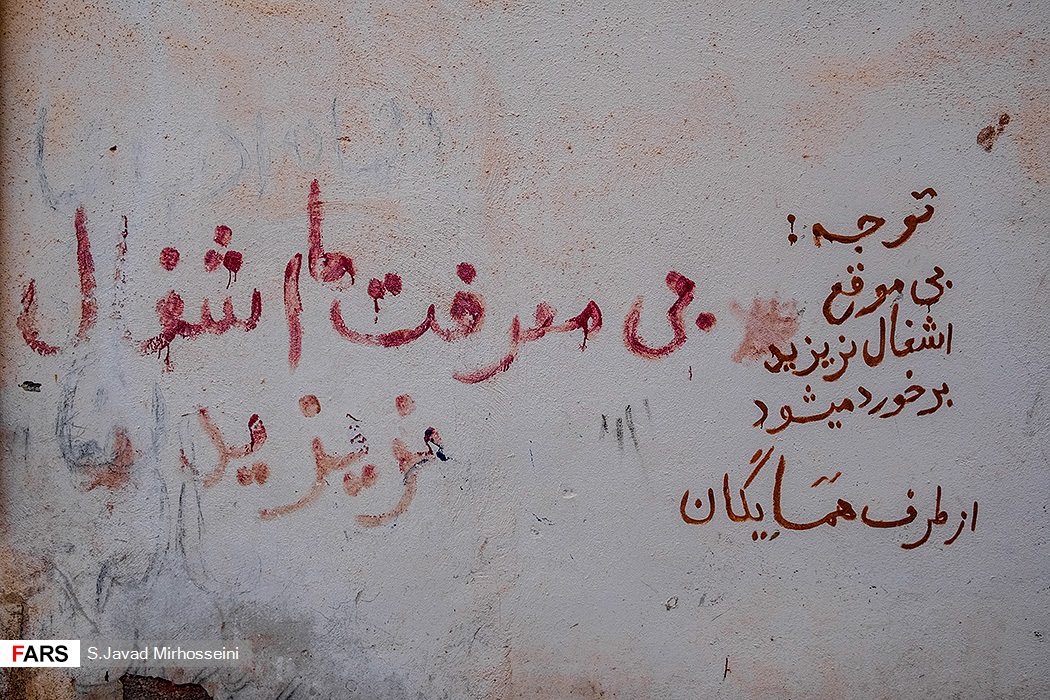 توجه:
بی موقع
اشغال نزیزید
برخورد میشود
از طرف همایگان
بی مورفت اشغول
نزیزید
FARS S.Javad Mirhosseini